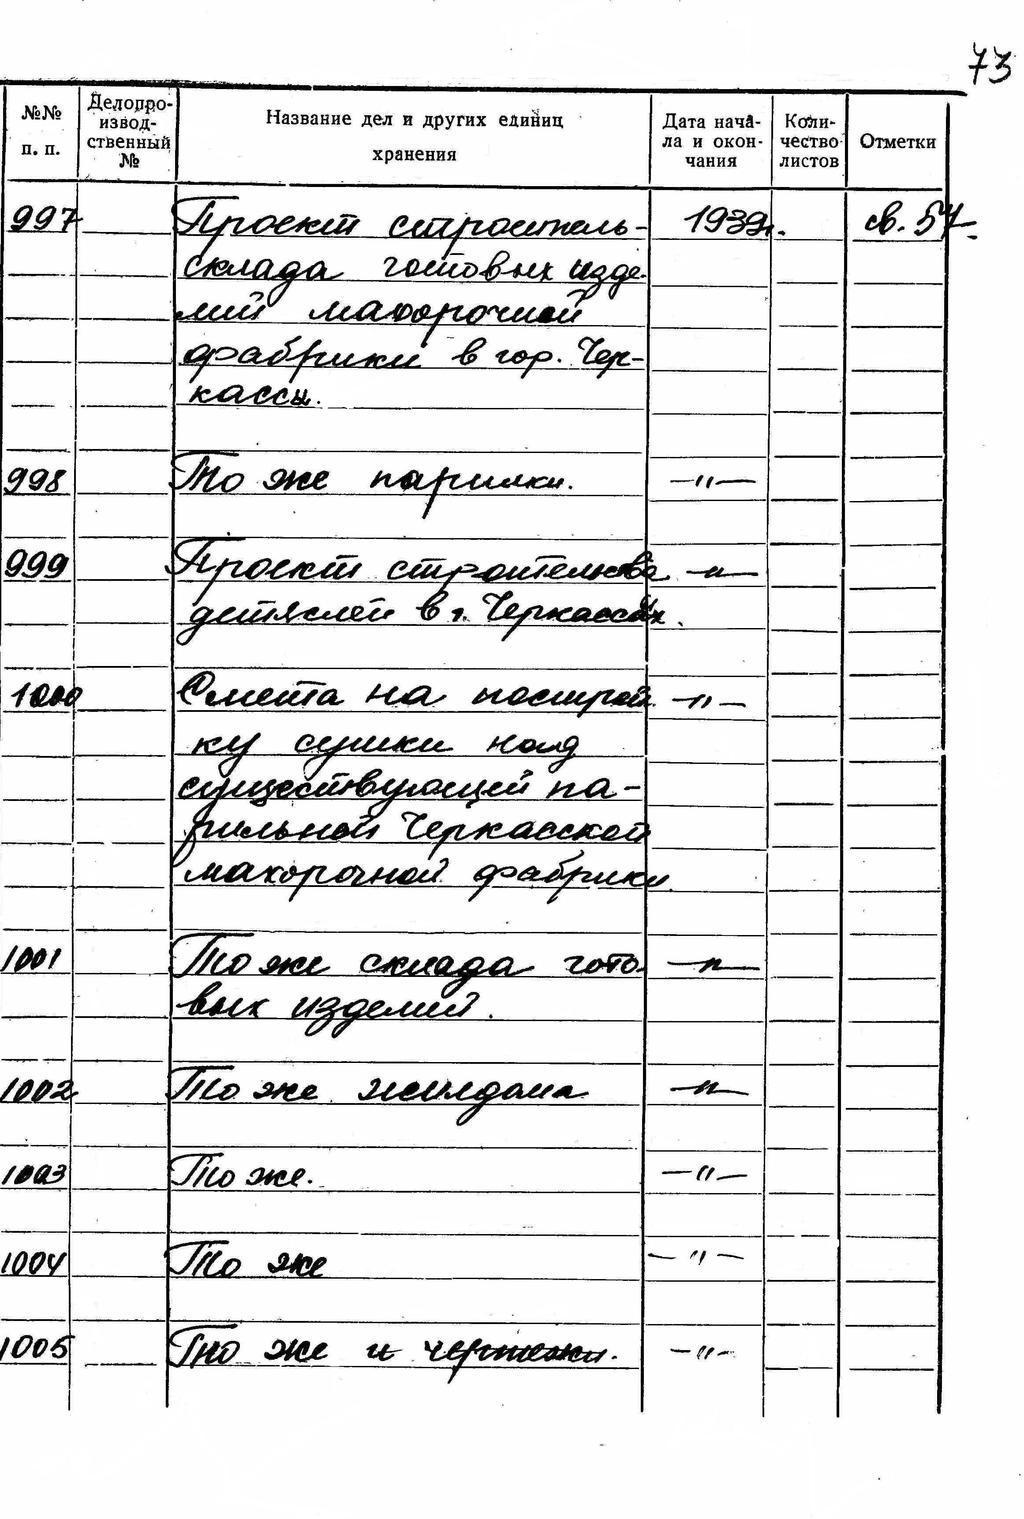 73
№№ п. п. Делопроизводственный № Название дел и других единиц хранения Дата начала и окончания Количество листов Отметки
997 Проект строитель- 1939г. св. 57.
склада готовых изде-
лий махорочной
фабрики в гор. Чер-
кассы.
998 То же парилки. —"—
999 Проект строительства —"—
детяслей в г. Черкассах.
1000 Смета на построй- —"—
ку сушки над
существующей па-
рильной Черкасской
махорочной фабрики
1001 То же склада гото- —"—
вых изделий.
1002 То же жилдома —"—
1003 То же. —"—
1004 То же —"—
1005 То же и чертежи. —"—